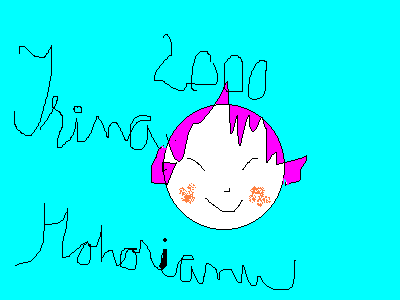 2000
Irina
Hohorianu